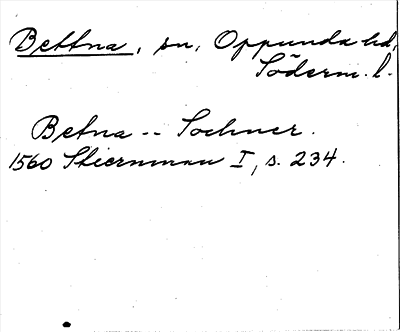 Bettna, sn, Oppunda hd,
Söderm. l.
Betna -- Sochner.
1560 Stiernman I, s. 234.